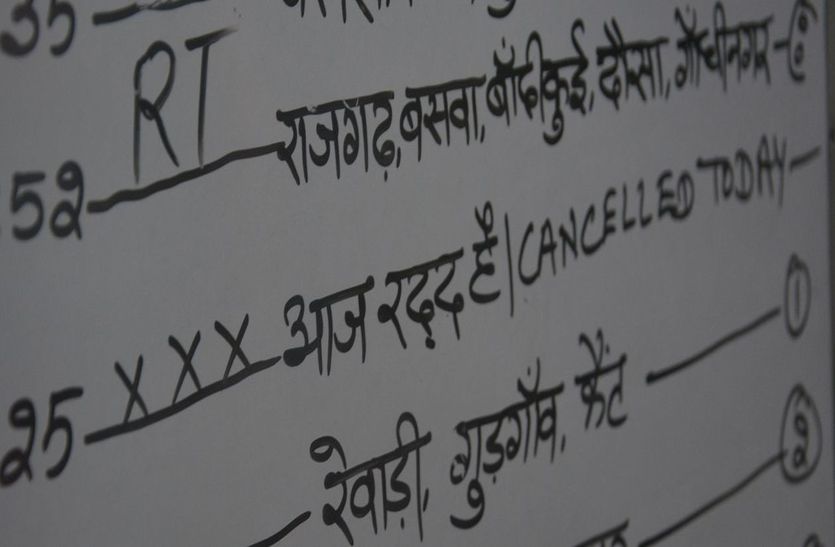 35
52 RT राजगढ़, बसवा, बाँदीकुई, दौसा, गाँधीनगर
25 XXX आज रद्द है। CANCELLED TODAY
रेवाड़ी, गुड़गाँव, कैंट 1
2